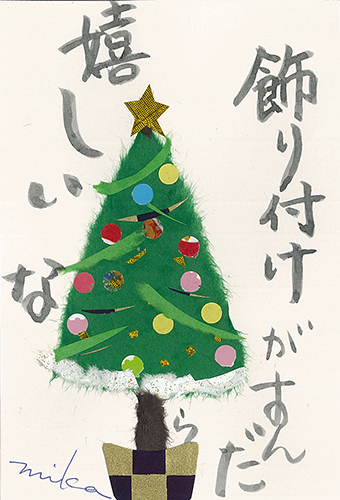 飾り付け
がすんだ
ら
嬉しいな
mika